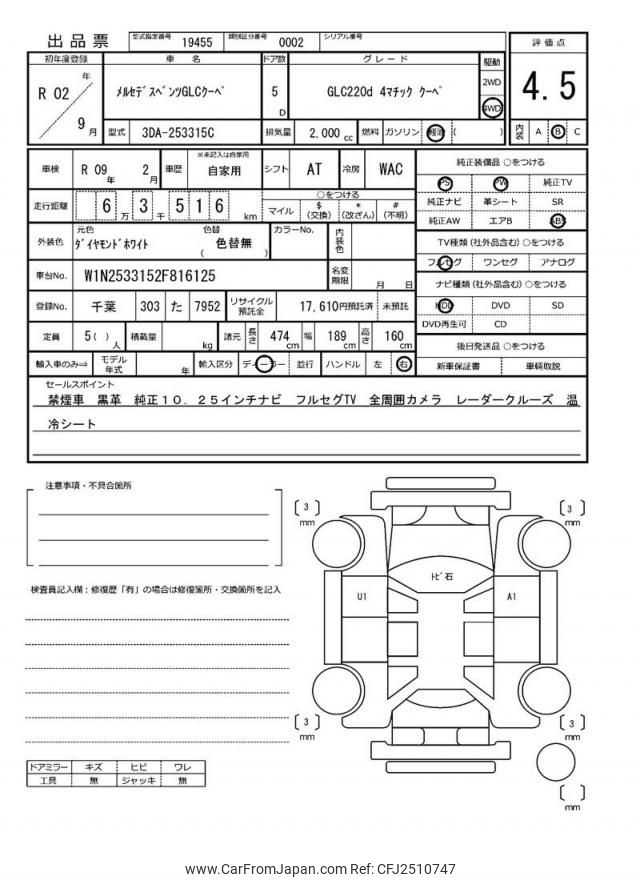 出品票 型式指定番号 19455 類別区分番号 0002 シリアル番号
初年度登録 車名 ドア数 グレード 駆動 評価点
R 02年 9月 ﾒﾙｾﾃﾞｽﾍﾞﾝﾂGLCｸｰﾍﾟ 5D GLC220d 4ﾏﾁｯｸ ｸｰﾍﾟ 2WD 4WD 4.5
型式 3DA-253315C 排気量 2,000cc 燃料 ガソリン 軽油 ( ) 内装 A B C
車検 R 09年 2月 車歴 ※未記入は自家用 自家用 シフト AT 冷房 WAC
純正装備品 ○をつける
PS PW 純正TV
走行距離 6万3千516km ○をつける
マイル $(交換) *(改ざん) #(不明)
純正ナビ 革シート SR
純正AW エアB ABS
外装色 元色 ﾀﾞｲﾔﾓﾝﾄﾞﾎﾜｲﾄ 色替 ( 色替無 ) カラーNo. 内装色
TV種類 (社外品含む) ○をつける
フルセグ ワンセグ アナログ
車台No. W1N2533152F816125 名変期限 月 日
ナビ種類 (社外品含む) ○をつける
HDD DVD SD
DVD再生可 CD
登録No. 千葉 303 た 7952 リサイクル預託金 17,610円預託済 未預託
定員 5( )人 積載量 kg 諸元 長さ 474cm 幅 189cm 高さ 160cm
後日発送品 ○をつける
新車保証書 車輌取説
輸入車のみ⇒ モデル年式 年 輸入区分 ディーラー 並行 ハンドル 左 右
セールスポイント
禁煙車 黒革 純正10．25インチナビ フルセグTV 全周囲カメラ レーダークルーズ 温
冷シート
注意事項・不具合箇所
[ 3 ] mm
[ 3 ] mm
ﾄﾋﾞ石
検査員記入欄：修復歴「有」の場合は修復箇所・交換箇所を記入
U1
A1
[ 3 ] mm
[ 3 ] mm
ドアミラー キズ ヒビ ワレ
工具 無 ジャッキ 無
[ ] mm
www.CarFromJapan.com Ref: CFJ2510747